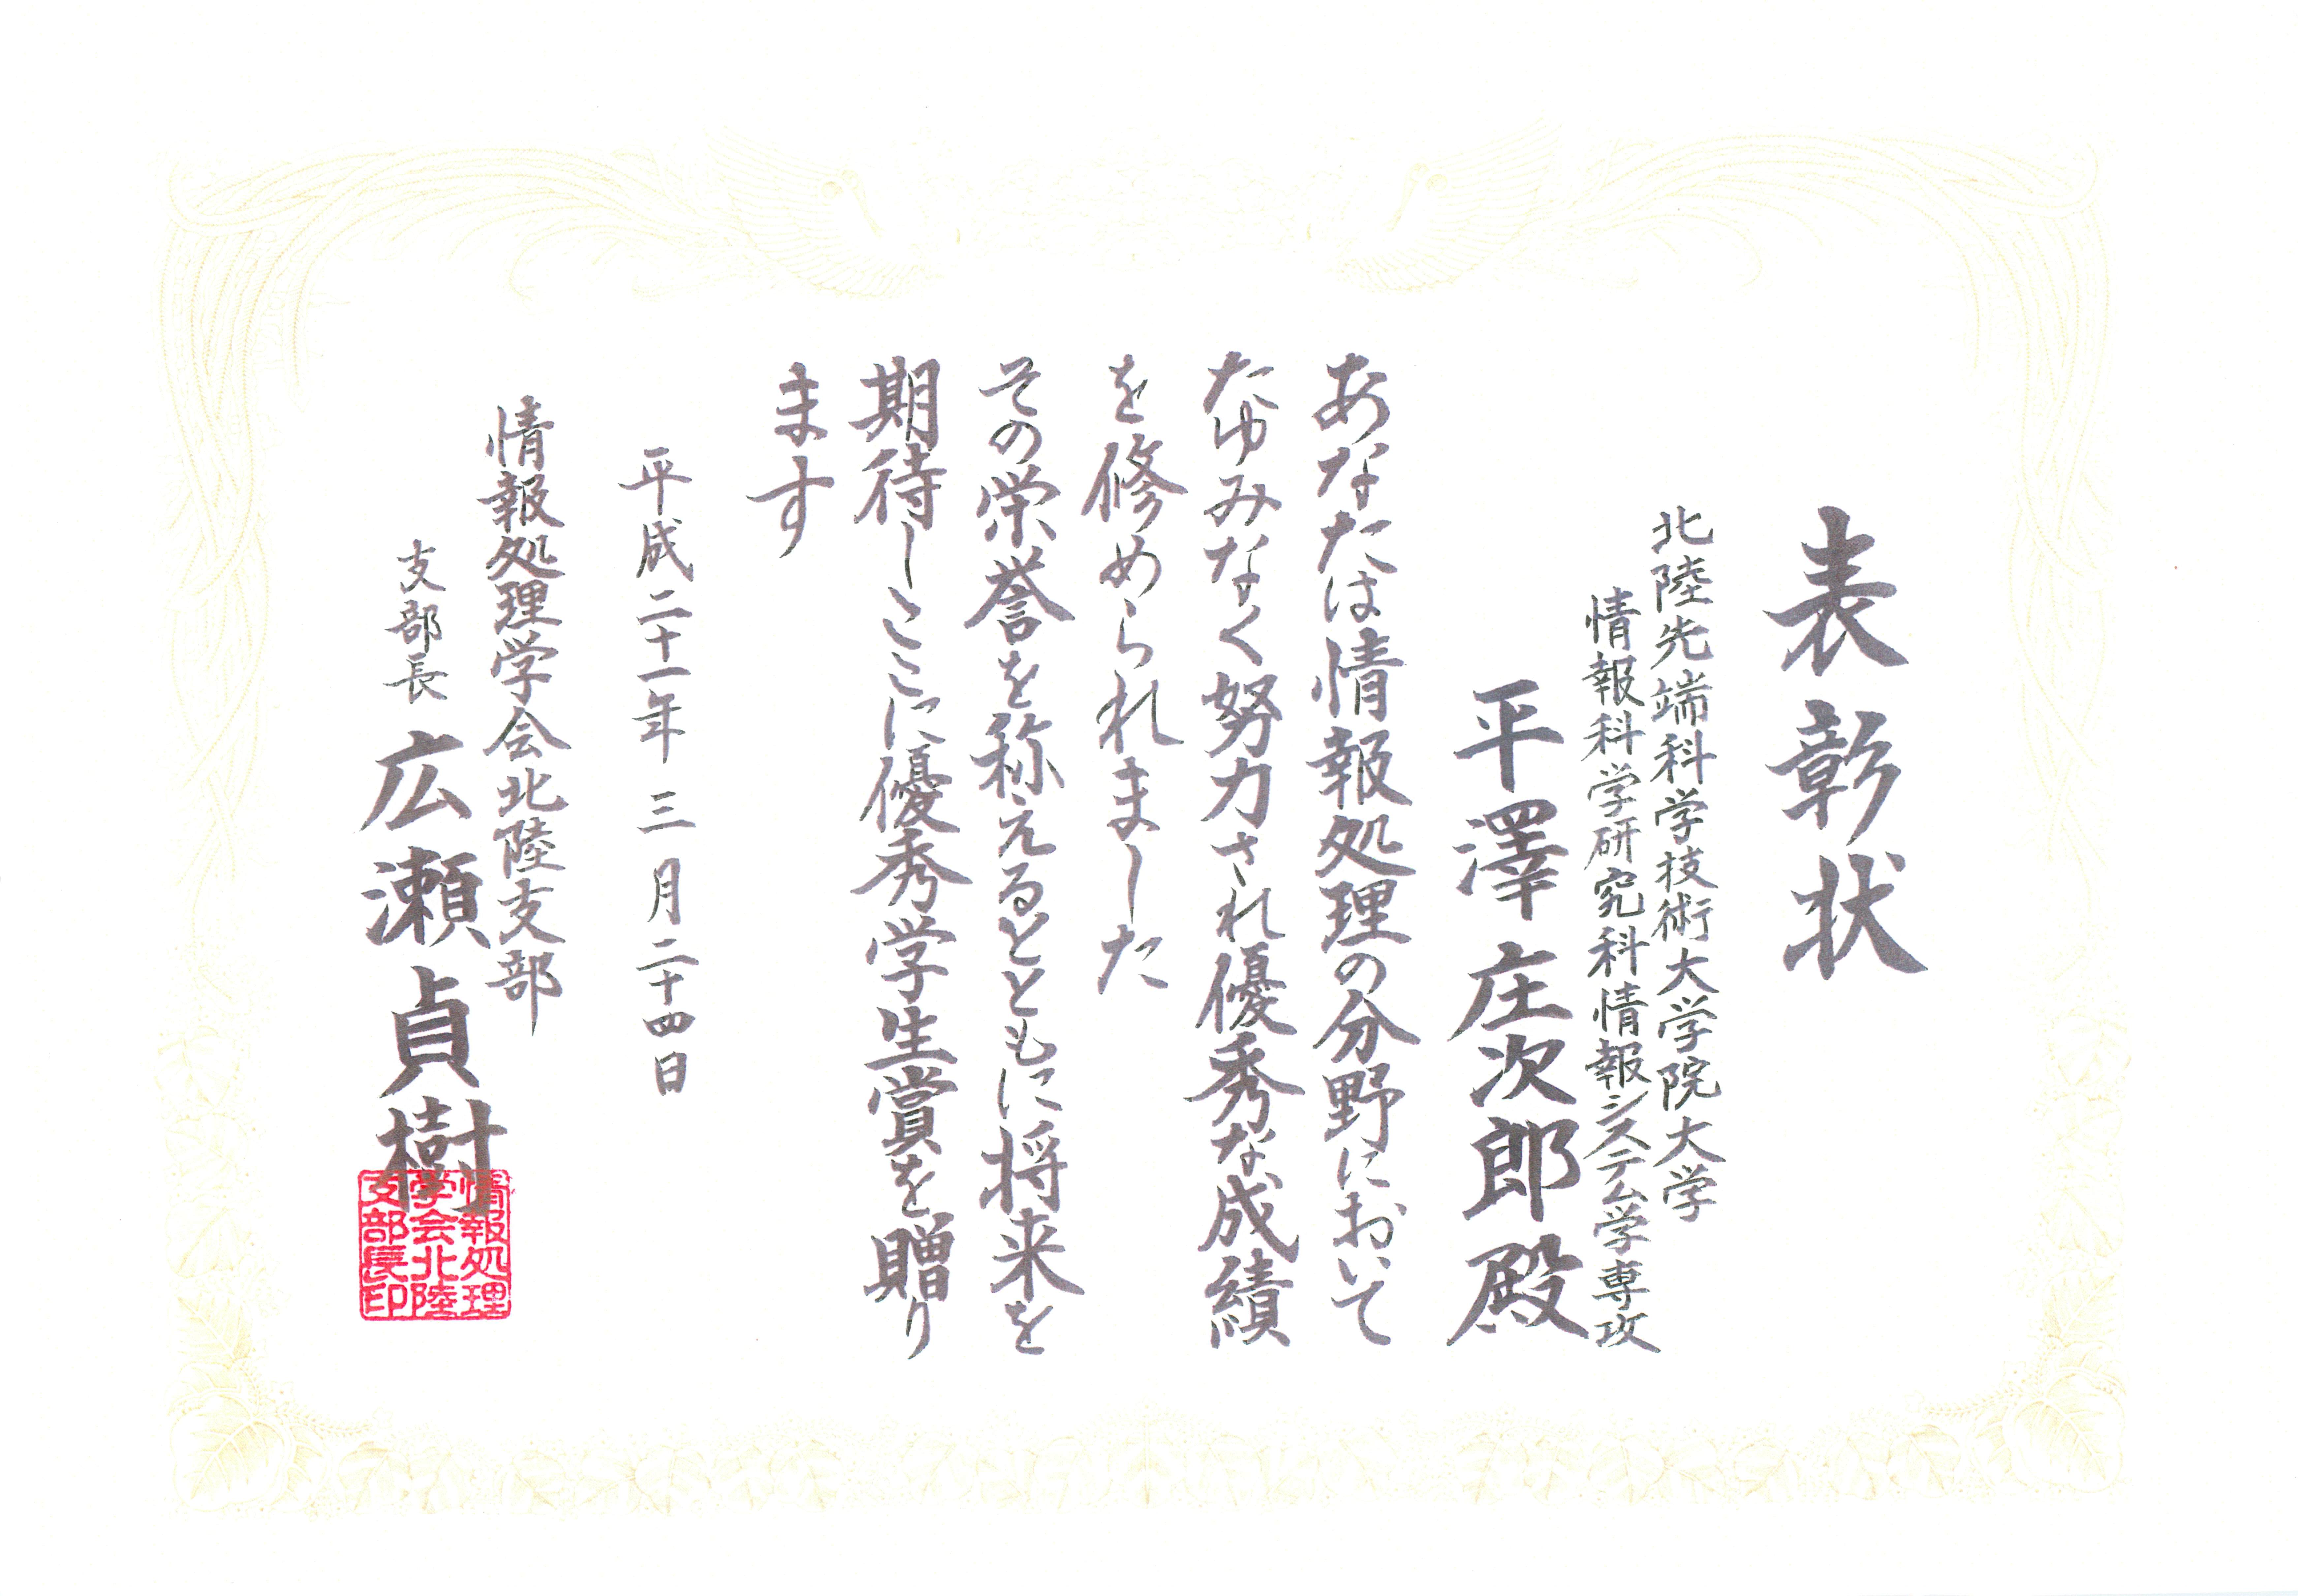 表彰状
北陸先端科学技術大学院大学
情報科学研究科情報システム学専攻
平澤庄次郎殿
あなたは情報処理の分野において
たゆみなく努力され優秀な成績
を修められました
その栄誉を称えるとともに将来を
期待しここに優秀学生賞を贈り
ます
平成二十一年三月二十四日
情報処理学会北陸支部
支部長 広瀬貞樹
情報処理
学会北陸
支部長印